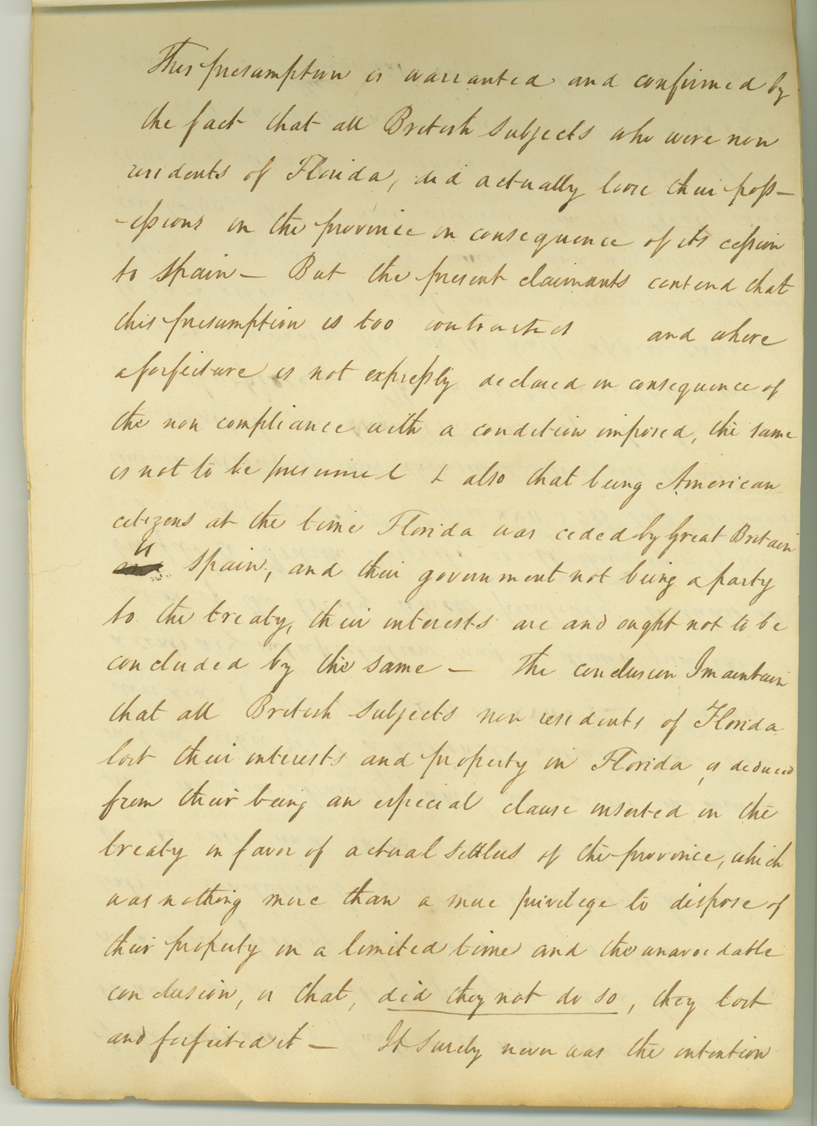 This presumption is warranted and confirmed by
the fact that all British Subjects who were non
residents of Florida, did actually loose their poss-
-essions in the province in consequence of its cession
to Spain — But the present claimants contend that
this presumption is too contracted and where
a forfeiture is not expressly declared in consequence of
the non compliance with a condition imposed, the same
is not to be presumed & also that being American
citizens at the time Florida was ceded by Great Britain
to Spain, and their government not being a party
to the treaty, their interests are and ought not to be
concluded by the same — The conclusion I maintain
that all British Subjects non residents of Florida
lost their interests and property in Florida, is deduced
from their being an especial clause inserted in the
treaty in favor of actual settlers of the province, which
was nothing more than a mere privilege to dispose of
their property in a limited time and the unavoidable
conclusion, is that, did they not do so, they lost
and forfeited it — It surely never was the intention